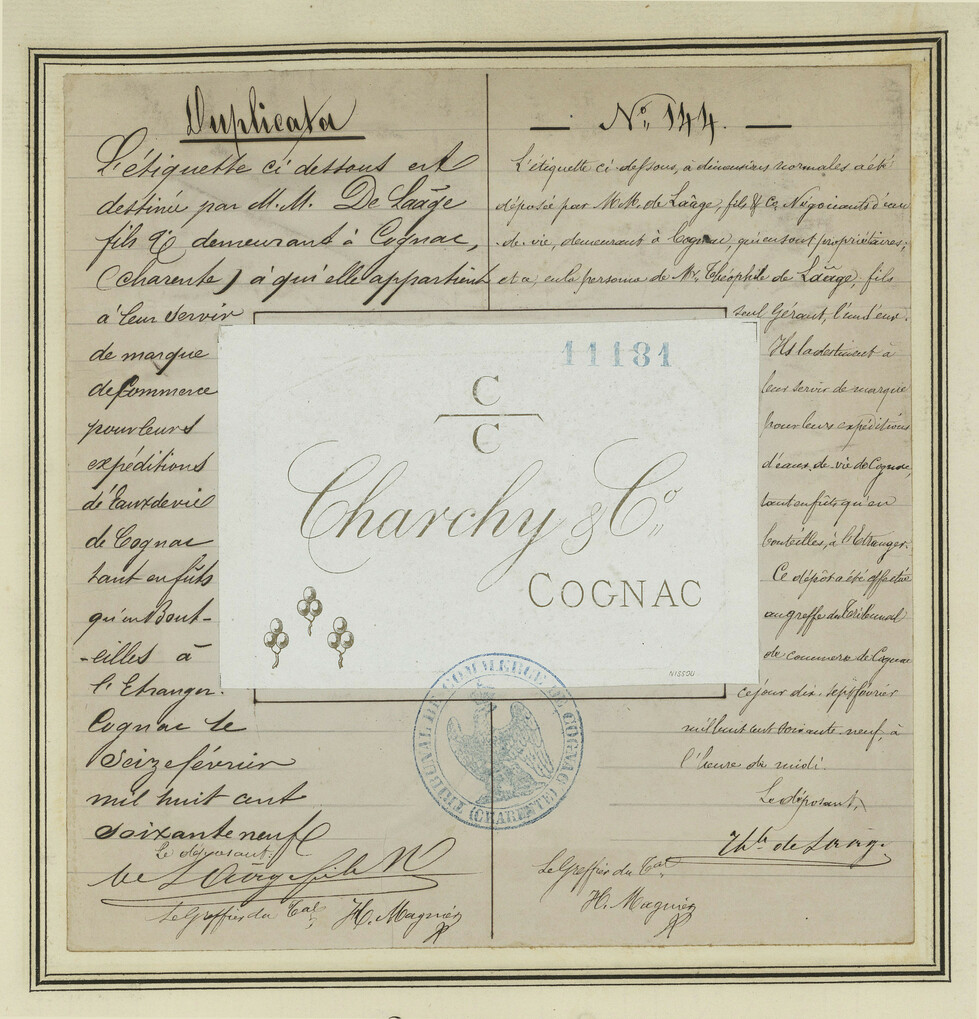 Duplicata
L'étiquette ci dessous est
destinée par M.M. De Laâge
fils & Cie demeurant à Cognac,
(Charente) à qui elle appartient
à leur servir
de marque
de Commerce
pour leurs
expéditions
d'Eaux de vie
de Cognac
tant en fûts
qu'en Bout-
-eilles à
l'Etranger.
Cognac le
Seize février
mil huit cent
soixante neuf
Le déposant.
De Laâge fils &
Le Greffier du Tal
H. Magnier
— No 144. —
L'étiquette ci-dessous, à dimensions normales a été
déposée par M.M. de Laâge, fils & Co Négociants d'eau
de vie, demeurant à Cognac, qui en sont propriétaires,
et a, en la personne de Mr. Théophile de Laâge fils
seul Gérant, l'un d'eux.
Ils la destinent à
leur servir de marque
pour leurs expéditions
d'eaux de vie de Cognac,
tant en fûts qu'en
bouteilles, à l'Etranger.
Ce dépôt a été effectué
au greffe du Tribunal
de commerce de Cognac
ce jour dix-sept février
mil huit cent soixante-neuf, à
l'heure de midi.
Le déposant,
Thle de Laâge.
Le Greffier du Tal
H. Magnier
11181
C
C
Charchy & Co
COGNAC
NISSOU
TRIBUNAL DE COMMERCE DE COGNAC
(CHARENTE)